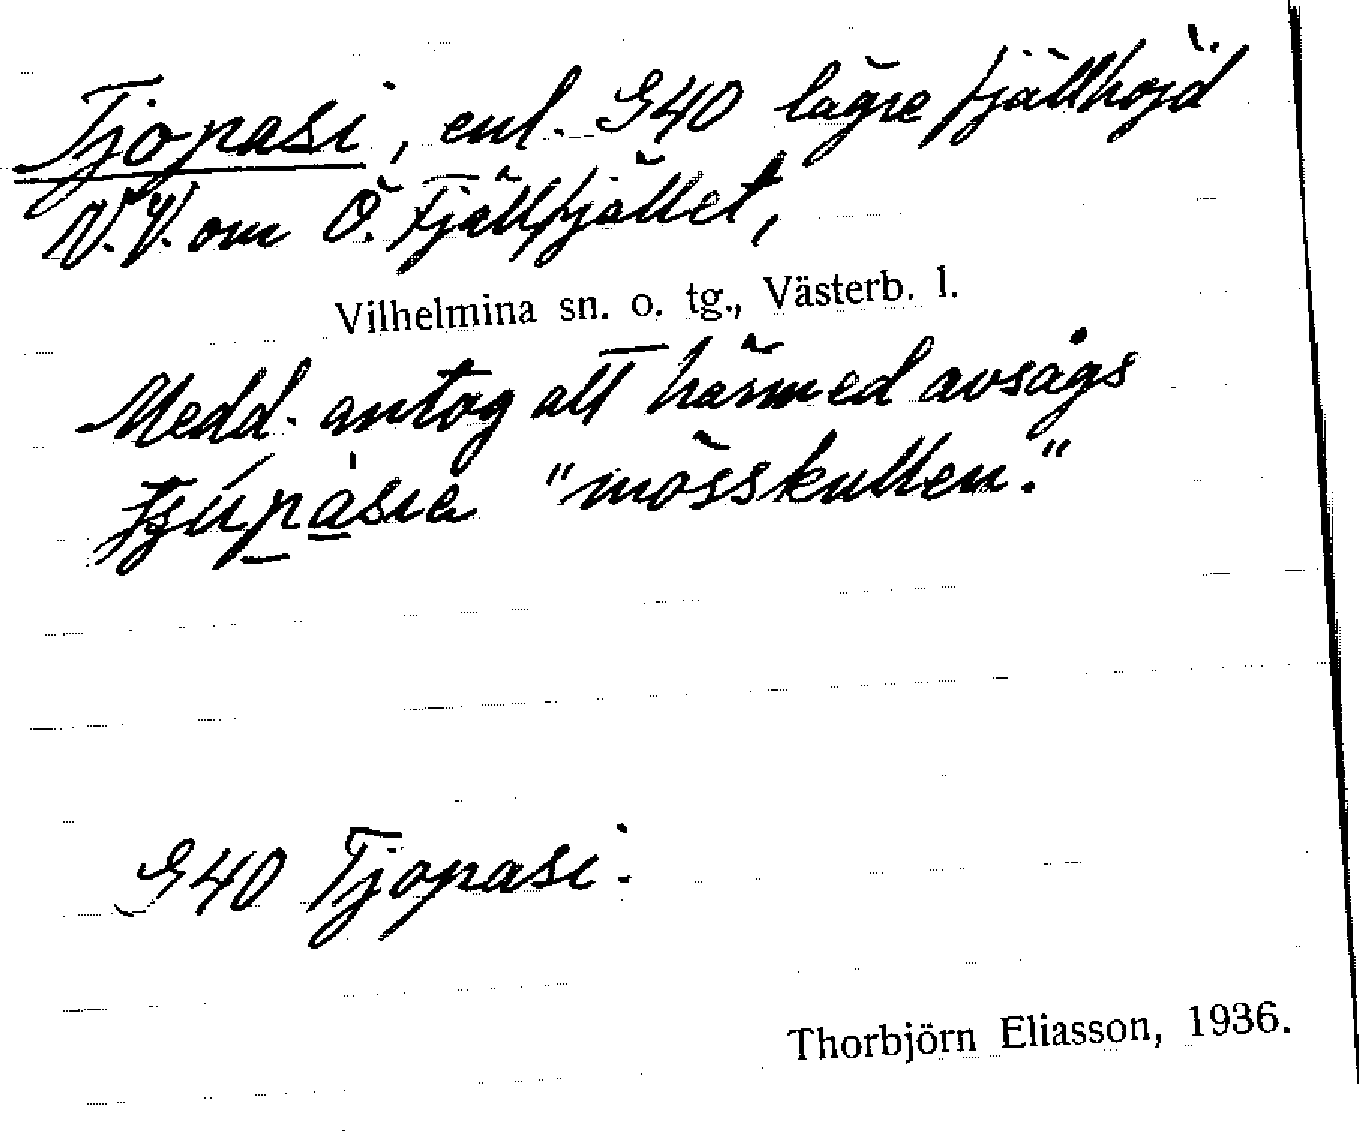 Tjopasi, enl. G40 lägre fjällhöjd
N.V. om Ö. Fjällfjället,
Vilhelmina sn. o. tg., Västerb. l.
Medd. antog att härmed avsågs
"mösskullen."
G40 Tjopasi.
Thorbjörn Eliasson, 1936.